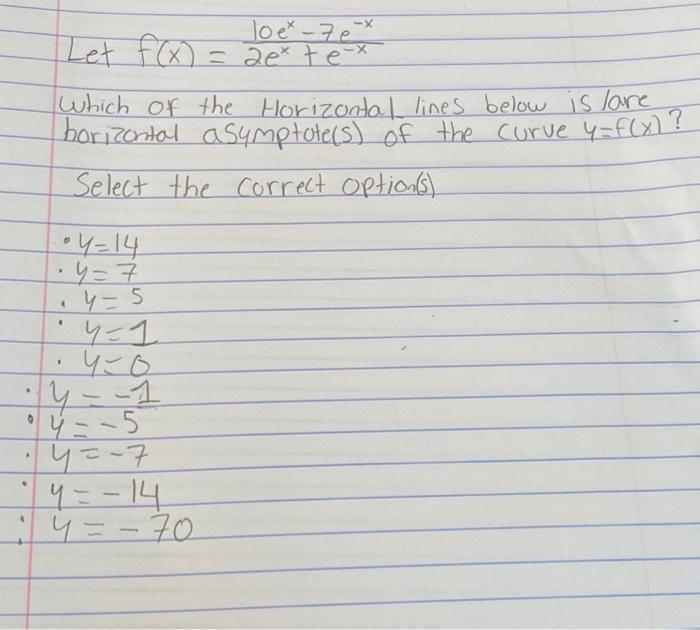 Let f(x) = (10eˣ - 7e⁻ˣ)/(2eˣ + e⁻ˣ)
Which of the Horizontal lines below is/are
horizontal asymptote(s) of the curve y=f(x)?
Select the correct option(s)
• y=14
• y=7
• y=5
• y=1
• y=0
• y=-1
• y=-5
• y=-7
• y=-14
• y=-70